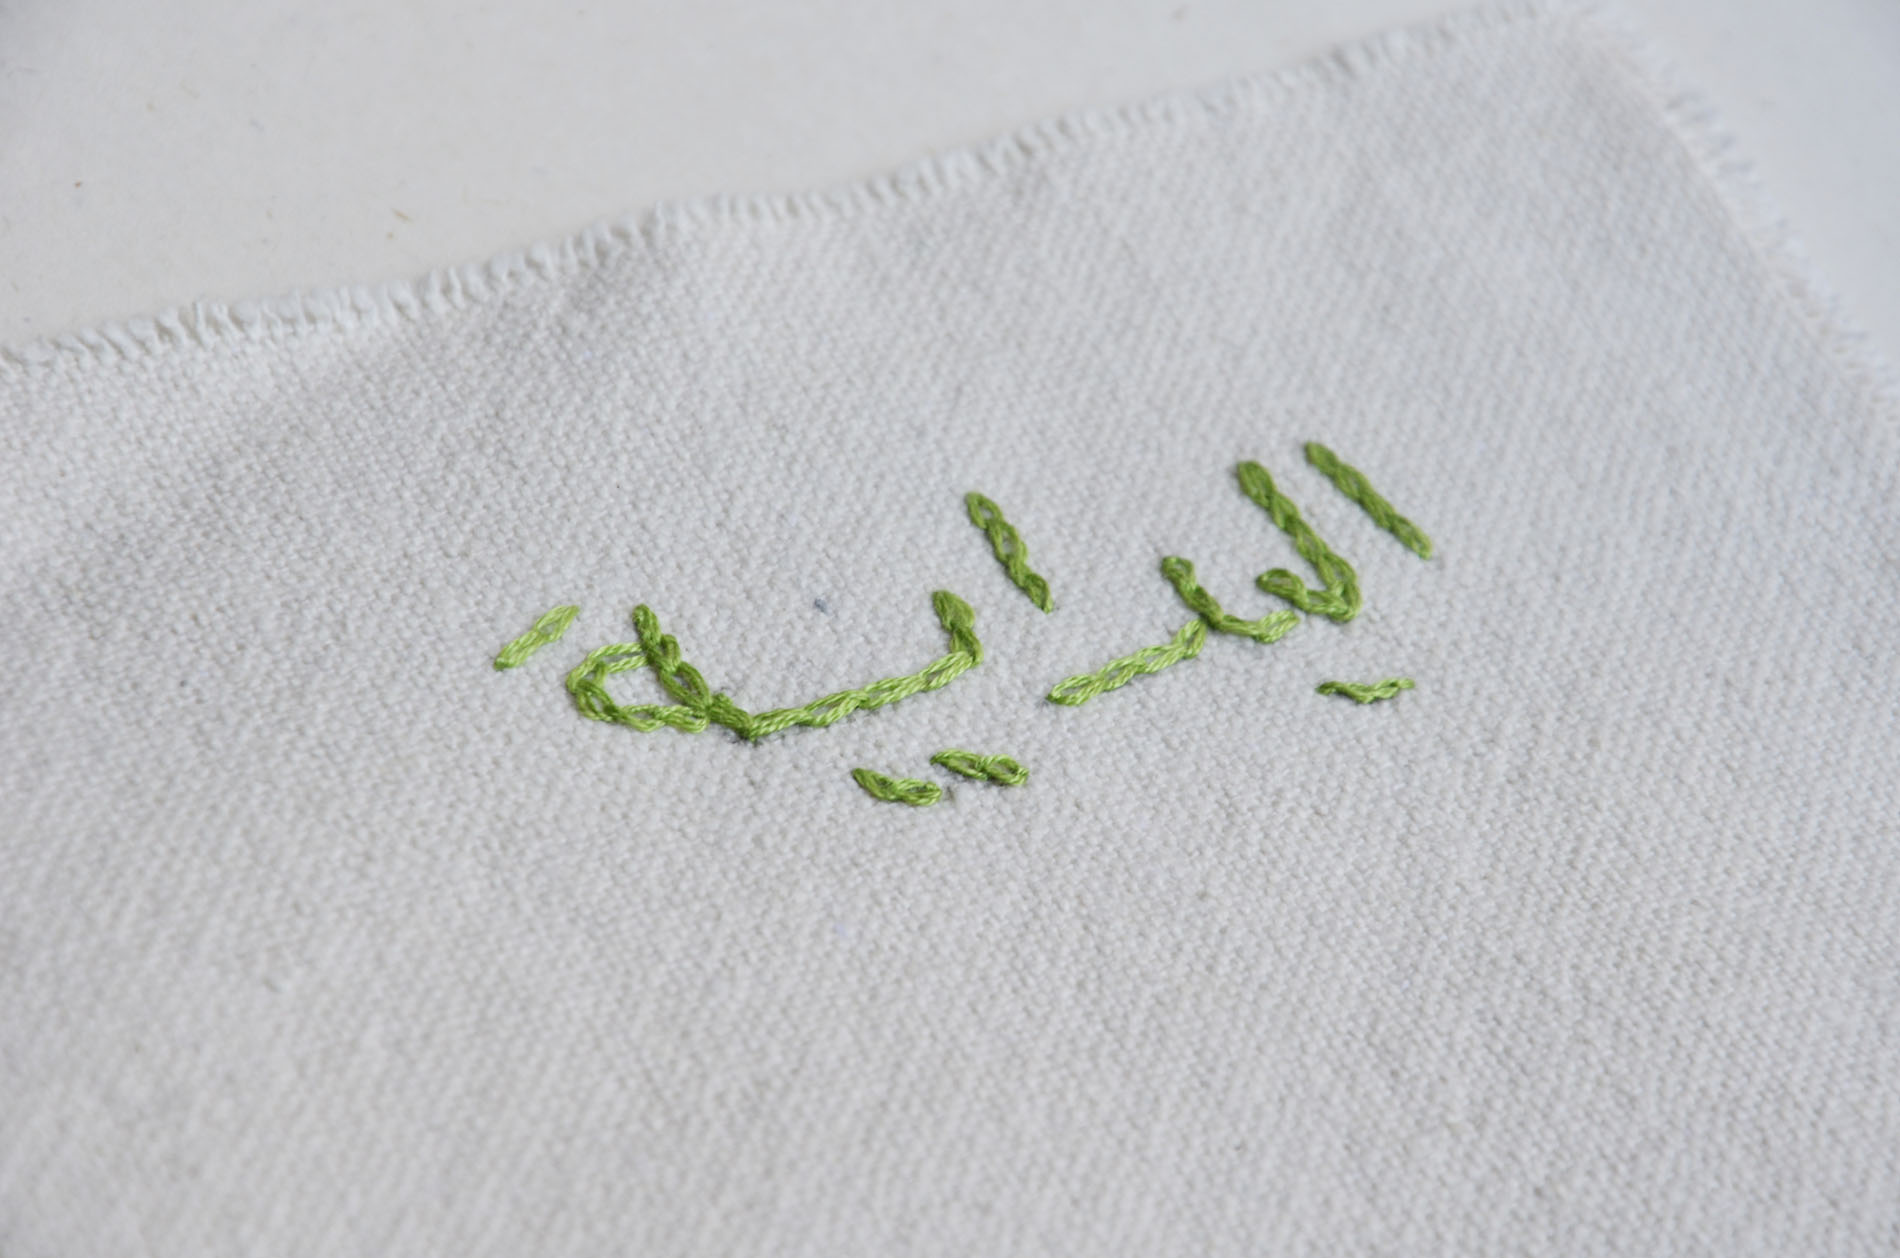 البداية